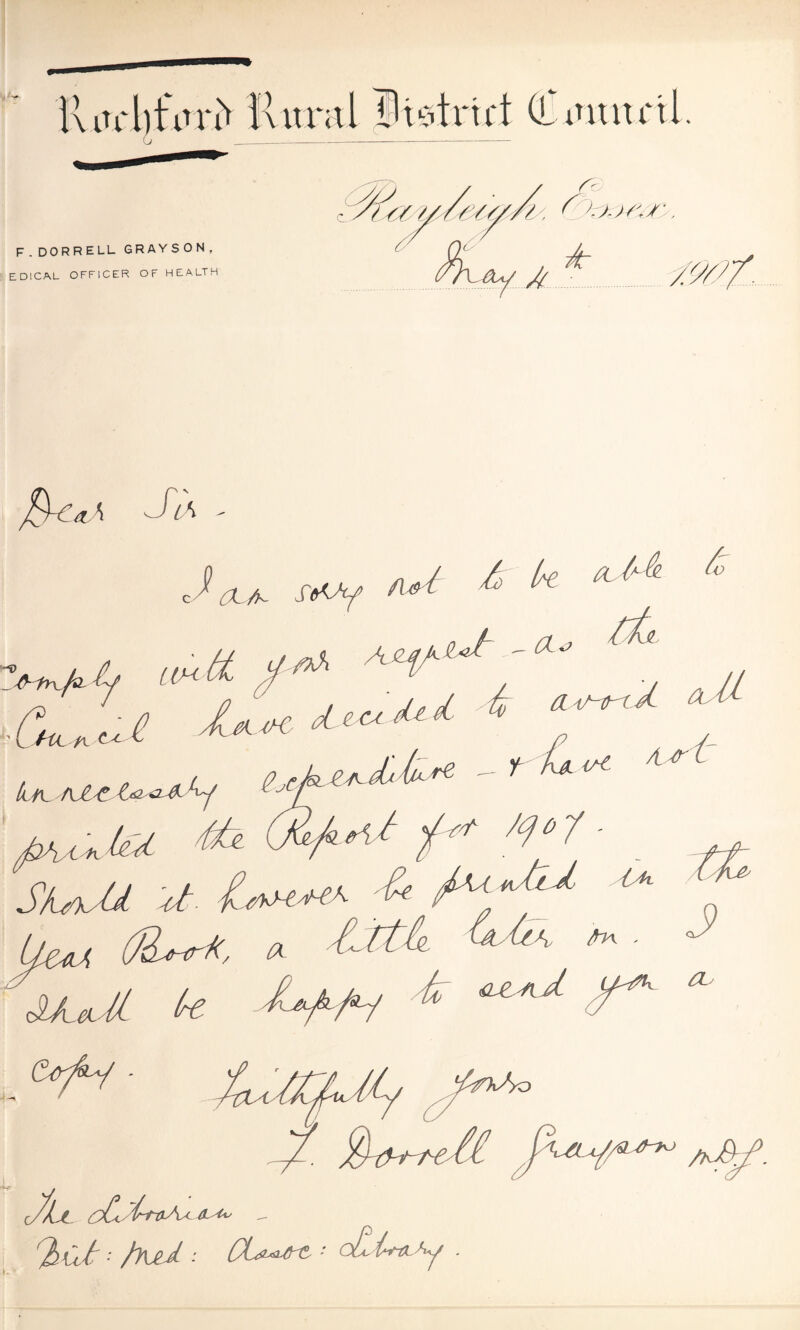 Rochford Rural District Council.
Rayleigh, Essex,
F. DORRELL GRAYSON,
EDICAL OFFICER OF HEALTH
May 4th 1907.
Dear Sir -
I am sorry not to be able to
Comply with your request - as the
Council have decided to avoid all
unnecessary expenditure - & have not
printed the Report for 1907 -
Should it however be printed in the
Year Book, a little later on. I
Shall be happy to send you a
Copy -
Faithfully yours
F. Dorrell Grayson
The Librarian -
Brit: Med: Assoc: Library.